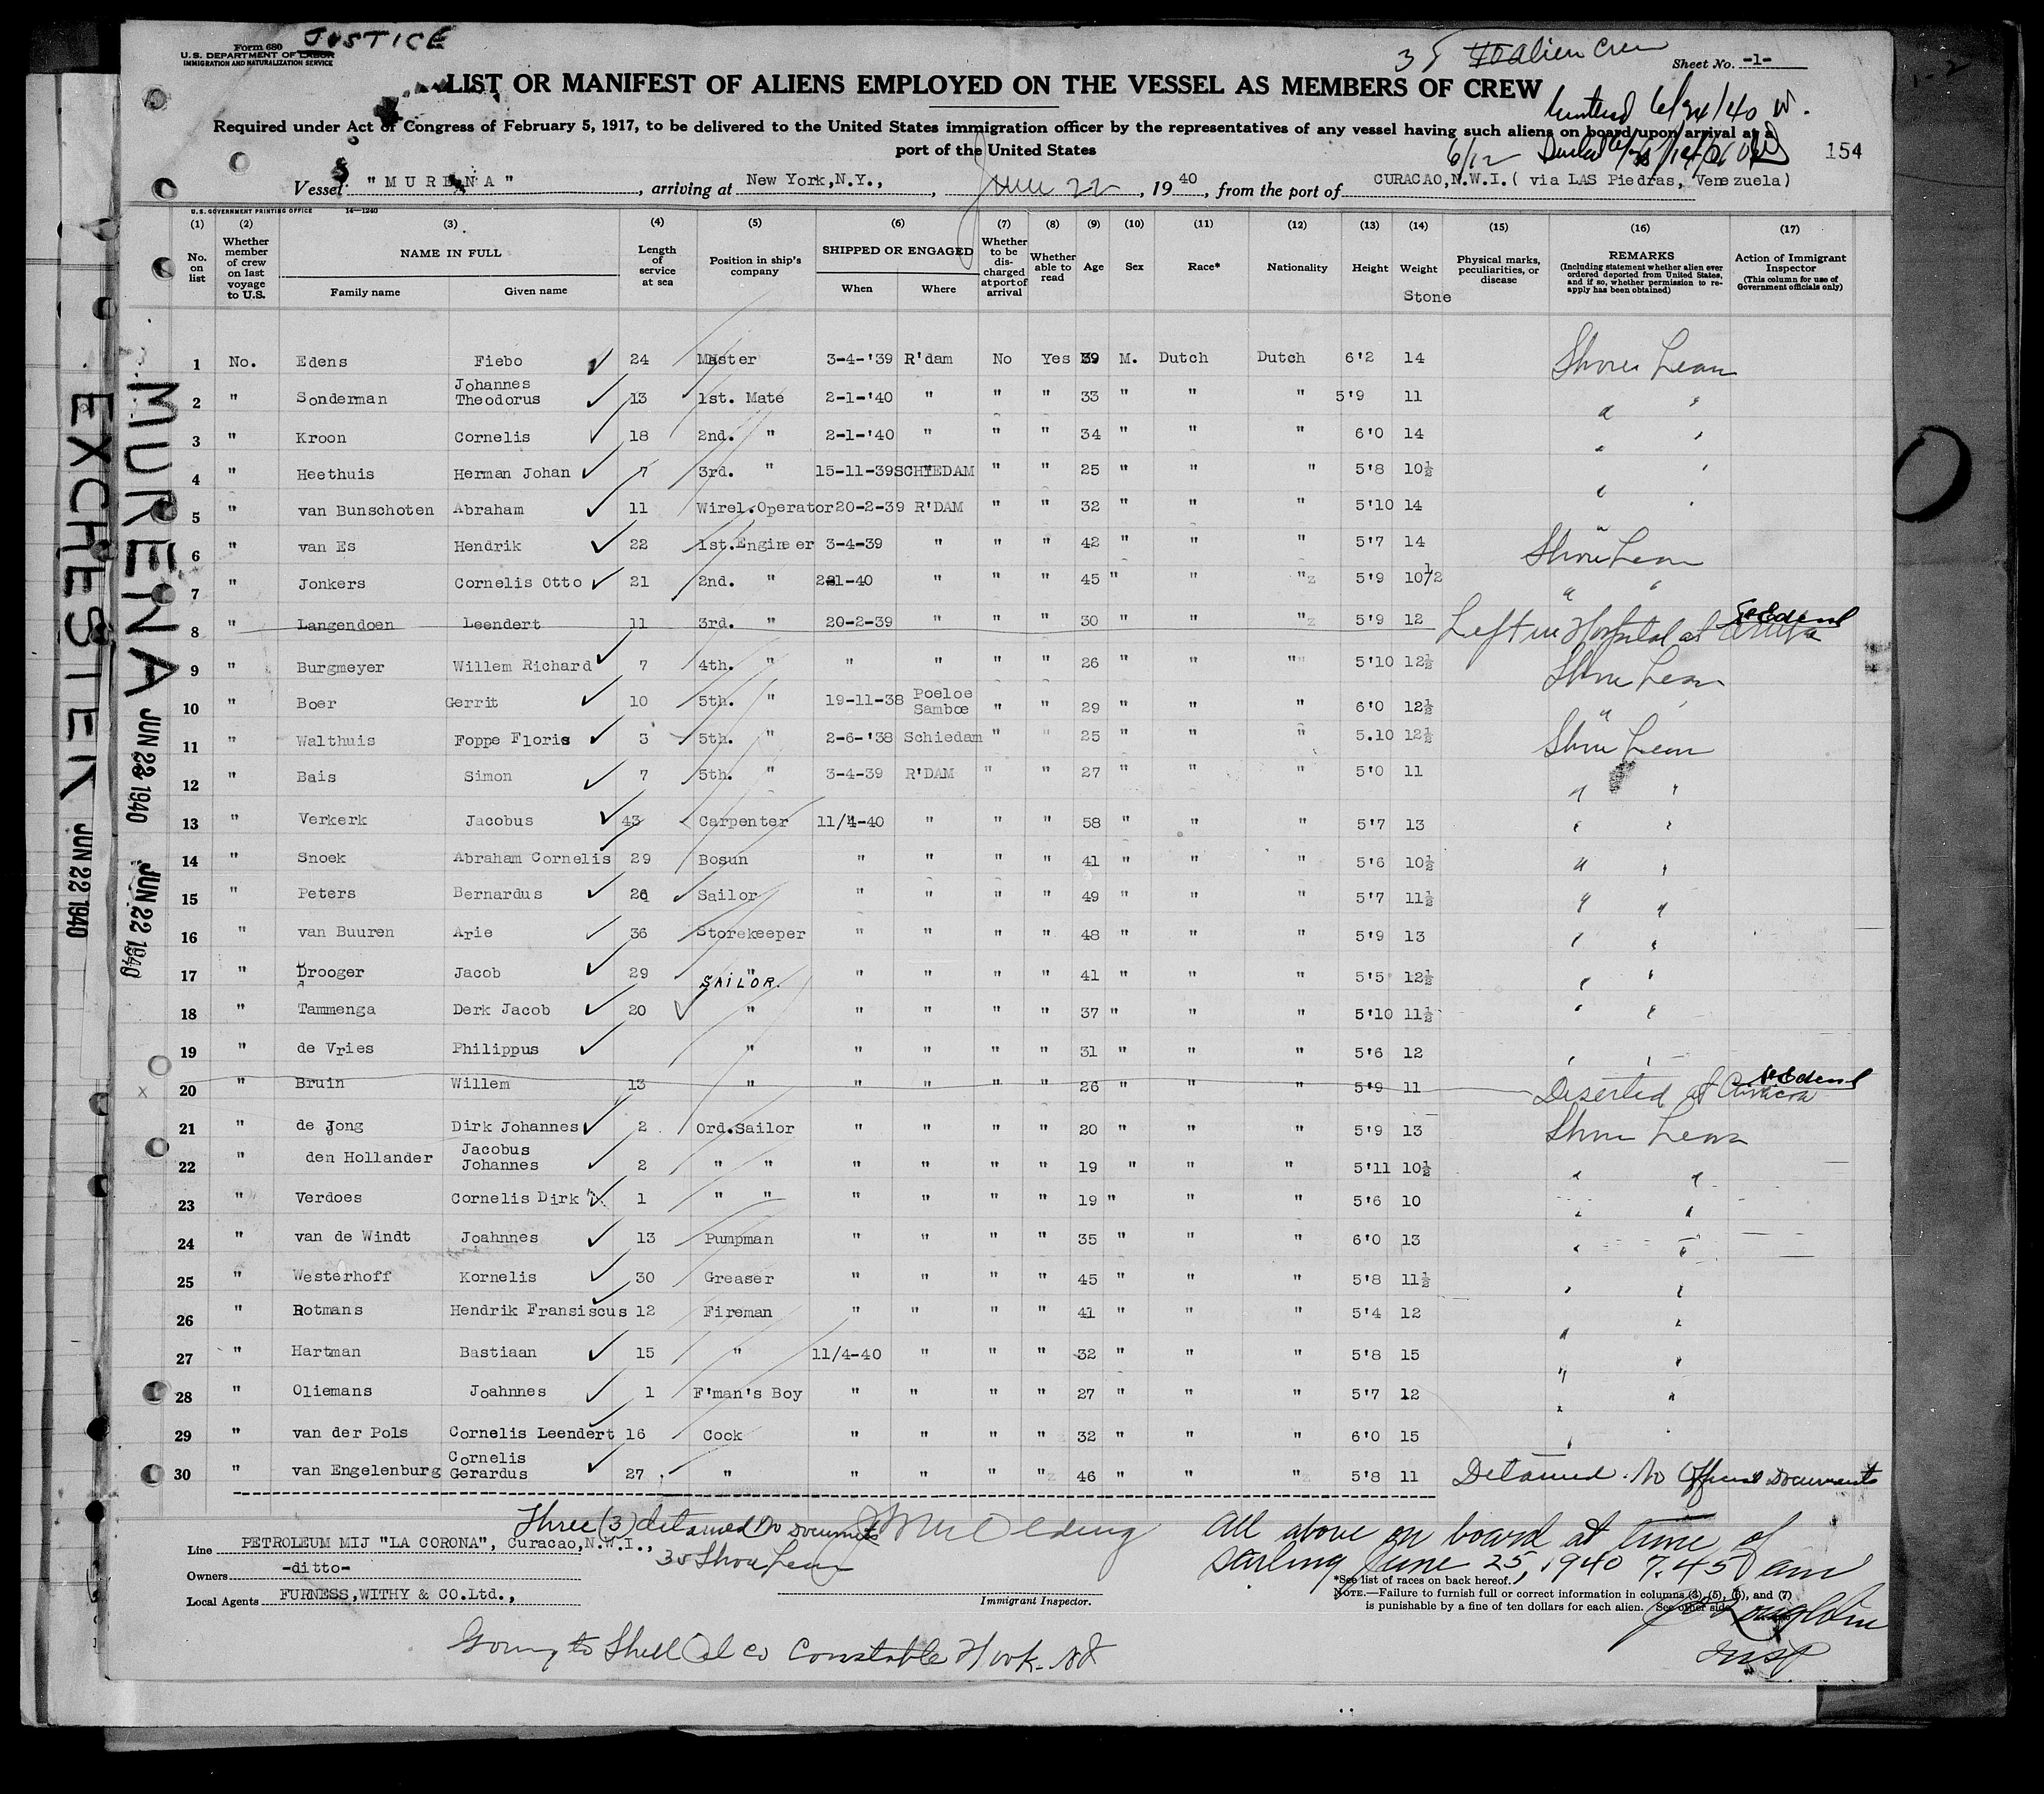 Form 680
JUSTICE
U.S. DEPARTMENT OF LABOR
IMMIGRATION AND NATURALIZATION SERVICE
alien Crew
Sheet No. -1-
LIST OR MANIFEST OF ALIENS EMPLOYED ON THE VESSEL AS MEMBERS OF CREW
6/24/40
Required under Act of Congress of February 5, 1917, to be delivered to the United States immigration officer by the representatives of any vessel having such aliens on board upon arrival at a
port of the United States
6/12
154
Vessel "MURENA", arriving at New York,N.Y., June 22, 1940, from the port of CURACAO,N.W.I.( via LAS Piedras, Venezuela)
U.S. GOVERNMENT PRINTING OFFICE 14—1240
(1) (2) (3) (4) (5) (6) (7) (8) (9) (10) (11) (12) (13) (14) (15) (16) (17)
No. on list
Whether member of crew on last voyage to U.S.
NAME IN FULL
Family name
Given name
Length of service at sea
Position in ship's company
SHIPPED OR ENGAGED
When
Where
Whether to be discharged at port of arrival
Whether able to read
Age
Sex
Race*
Nationality
Height
Weight
Stone
Physical marks, peculiarities, or disease
REMARKS
(Including statement whether alien ever ordered deported from United States, and if so, whether permission to reapply has been obtained)
Action of Immigrant Inspector
(This column for use of Government officials only)
1 No. Edens Fiebo 24 Master 3-4-'39 R'dam No Yes 39 M. Dutch Dutch 6'2 14 Shore Leave
2 " Sonderman Johannes Theodorus 13 1st. Mate 2-1-'40 " " " 33 " " " 5'9 11 " "
3 " Kroon Cornelis 18 2nd. " 2-1-'40 " " " 34 " " " 6'0 14 " "
4 " Heethuis Herman Johan 7 3rd. " 15-11-39 SCHIEDAM " " 25 " " " 5'8 10½ " "
5 " van Bunschoten Abraham 11 Wirel.Operator 20-2-39 R'DAM " " 32 " " " 5'10 14 " "
6 " van Es Hendrik 22 1st.Engineer 3-4-39 " " " 42 " " " 5'7 14 Shore Leave
7 " Jonkers Cornelis Otto 21 2nd. " 2-1-40 " " " 45 " " " 5'9 10½ " "
8 " Langendoen Leendert 11 3rd. " 20-2-39 " " " 30 " " " 5'9 12 Left in Hospital at Aruba
9 " Burgmeyer Willem Richard 7 4th. " " " " " 26 " " " 5'10 12½ Shore Leave
10 " Boer Gerrit 10 5th. " 19-11-38 Poeloe Samboe " " 29 " " " 6'0 12½ " "
11 " Walthuis Foppe Floris 3 5th. " 2-6-'38 Schiedam " " 25 " " " 5.10 12½ Shore Leave
12 " Bais Simon 7 5th. " 3-4-39 R'DAM " " 27 " " " 5'0 11 " "
13 " Verkerk Jacobus 43 Carpenter 11/4-40 " " " 58 " " " 5'7 13 " "
14 " Snoek Abraham Cornelis 29 Bosun " " " " 41 " " " 5'6 10½ " "
15 " Peters Bernardus 26 Sailor " " " " 49 " " " 5'7 11½ " "
16 " van Buuren Arie 36 Storekeeper " " " " 48 " " " 5'9 13 " "
17 " Drooger Jacob 29 " SAILOR. " " " " 41 " " " 5'5 12½ " "
18 " Tammenga Derk Jacob 20 " " " " " 37 " " " 5'10 11½ " "
19 " de Vries Philippus " " " " " 31 " " " 5'6 12 " "
20 " Bruin Willem 13 " " " " " 26 " " " 5'9 11 Deserted at Curacoa
21 " de Jong Dirk Johannes 2 Ord.Sailor " " " " 20 " " " 5'9 13 Shore Leave
22 " den Hollander Jacobus Johannes 2 " " " " " " 19 " " " 5'11 10½ " "
23 " Verdoes Cornelis Dirk 1 " " " " " " 19 " " " 5'6 10 " "
24 " van de Windt Joahnnes 13 Pumpman " " " " 35 " " " 6'0 13 " "
25 " Westerhoff Kornelis 30 Greaser " " " " 45 " " " 5'8 11½ " "
26 " Rotmans Hendrik Fransiscus 12 Fireman " " " " 41 " " " 5'4 12 " "
27 " Hartman Bastiaan 15 " 11/4-40 " " " 32 " " " 5'8 15 " "
28 " Oliemans Joahnnes 1 F'man's Boy " " " " 27 " " " 5'7 12 " "
29 " van der Pols Cornelis Leendert 16 Cook " " " " 32 " " " 6'0 15 " "
30 " van Engelenburg Cornelis Gerardus 27 " " " " " 46 " " " 5'8 11 Detained. No Official Documents
Three (3) detained No Documents
35 Shore Leave
All above on board at time of
Sailing June 25, 1940 7.45 am
Line PETROLEUM MIJ "LA CORONA", Curacao,N.W.I.,
Owners -ditto-
Local Agents FURNESS,WITHY & CO.Ltd.,
Immigrant Inspector.
*See list of races on back hereof.
NOTE.—Failure to furnish full or correct information in columns (3), (5), (6), and (7)
is punishable by a fine of ten dollars for each alien. See other side.
Insp
Going to Shell Oil Co Constable Hook. NJ
MURENA JUN 22 1940 JUN 22 1940
EXCHESTER JUN 22 1940